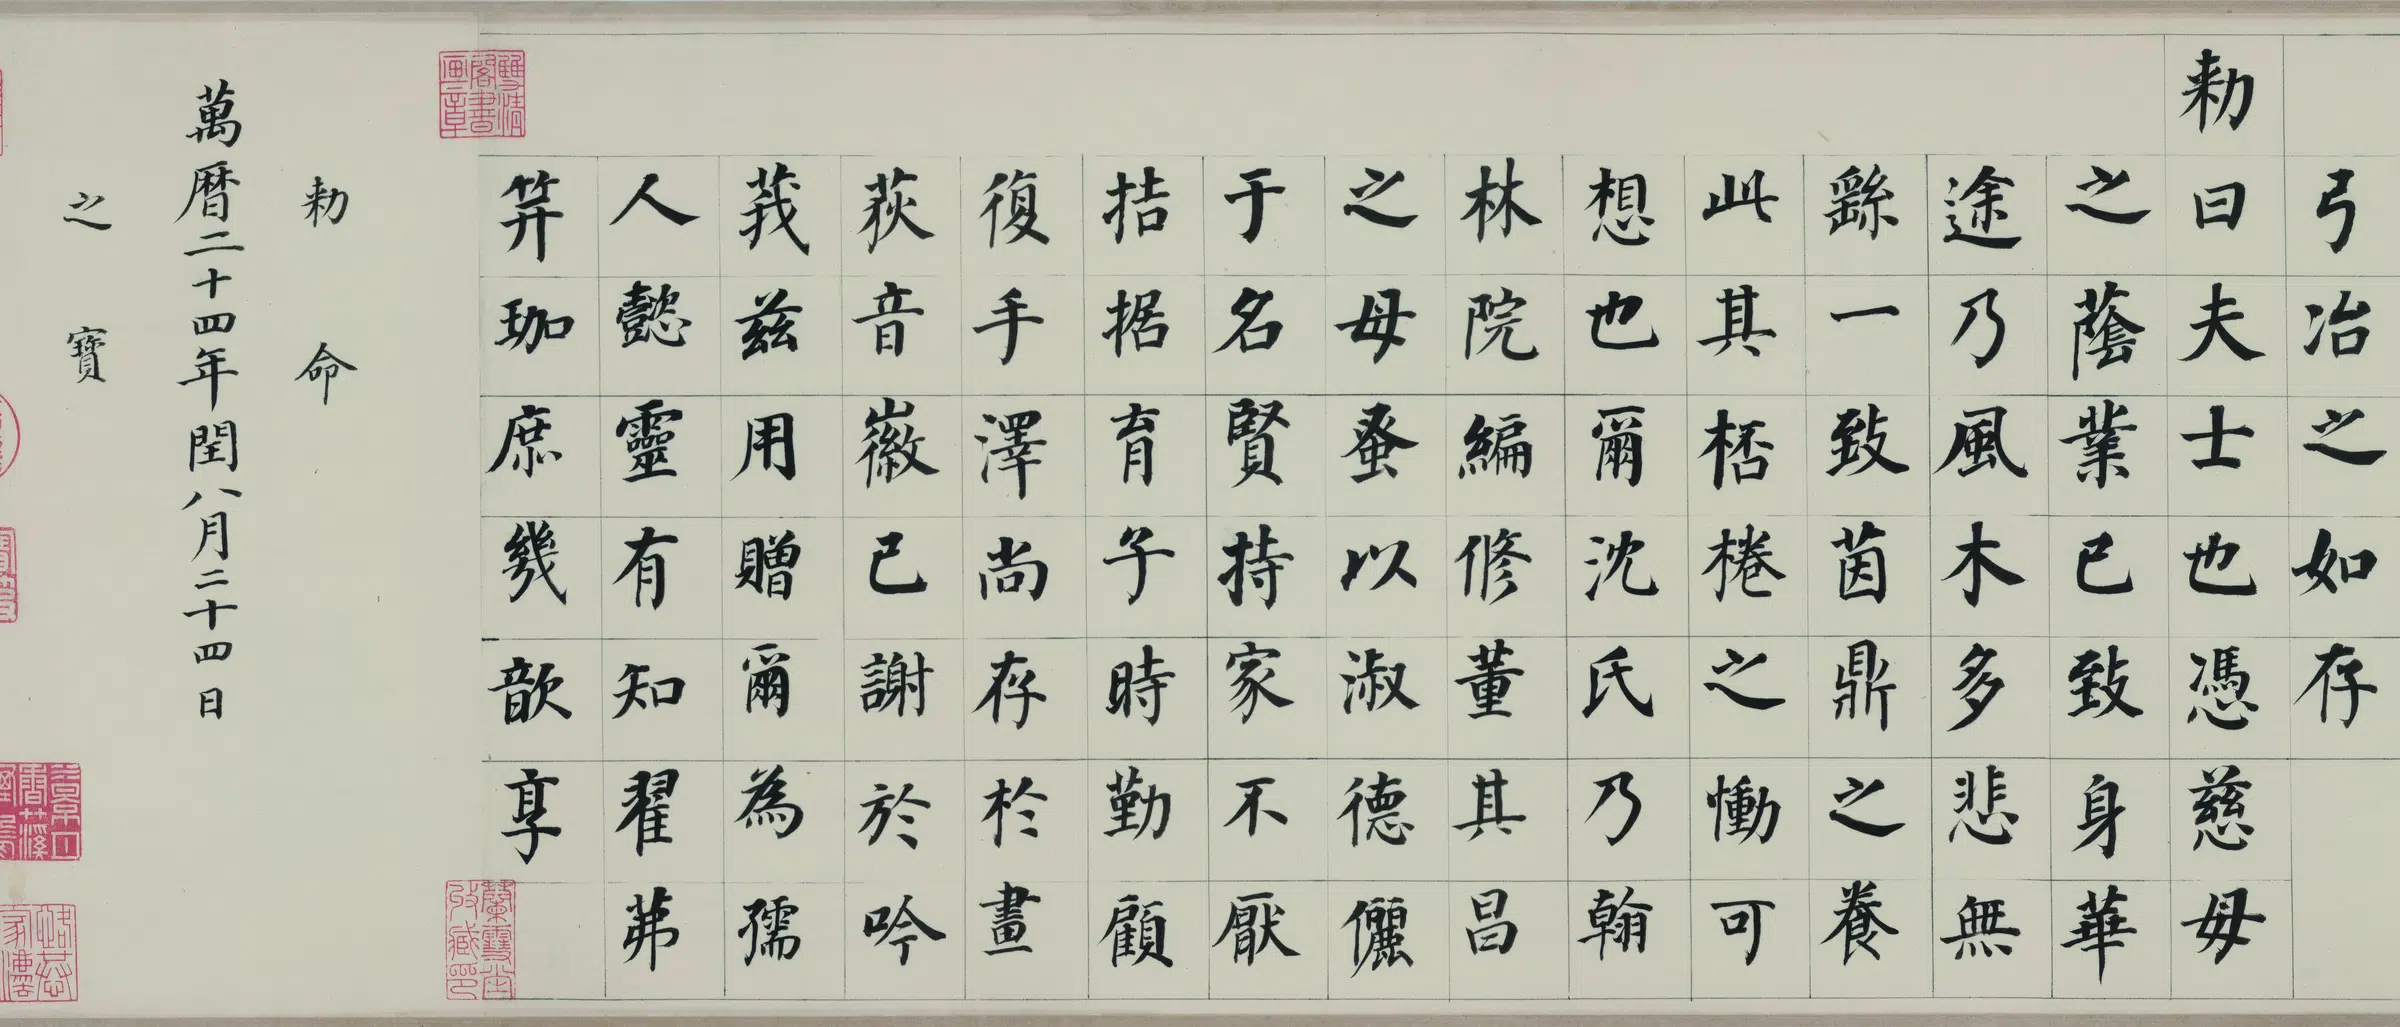 弓冶之如存
勑曰夫士也憑慈母
之蔭業已致身華
途乃風木多悲無
繇一致茵鼎之養
此其桮棬之慟可
想也爾沈氏乃翰
林院編修董其昌
之母蚤以淑德儷
于名賢持家不厭
拮据育子時勤顧
復手澤尚存於畫
荻音徽已謝於吟
莪茲用贈爾為孺
人懿靈有知翟茀
笄珈庶幾歆享
勑命
萬曆二十四年閏八月二十四日
之寶
雙清閣書画章
蘭雪堂收藏印